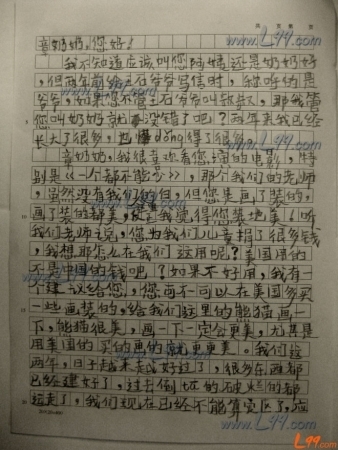 www.L99.com
章奶奶,您好!
我不知道应该叫您阿姨还是奶奶好
,但两年前给石爷爷写信时,称呼的是
爷爷,如果您不管石爷爷叫叔叔,那我管
您叫奶奶就没错了吧?两年来我已经
长大了很多,也懂dǒng得了很多。
章奶奶,我很喜欢看您演的电影,特
别是《一个都不能少》,那个我们的老师
,虽然没有我们的白,但您是画了装的,
画了装的都美,
我觉得您装地美!听
我们老师说,您为我们儿童捐了很多钱
,我想那怎么在我们这用呢?美国用的
不是中国的钱吧!?如果不好用,我有一
个建议给您,您可不可以在美国多买
一些画装的,给我们这里的熊猫画一
下,熊猫很美,画一下一定会更美,尤其是
用美国的买的画的就更更美。我们这
两年,日子越来越好过了,很多东西都
已经建好了,过去倒
的破烂的都
运走了,我们现在已经不能算灾区了,应
www.L99.com
www.L99.com
www.L99.com
L99.com